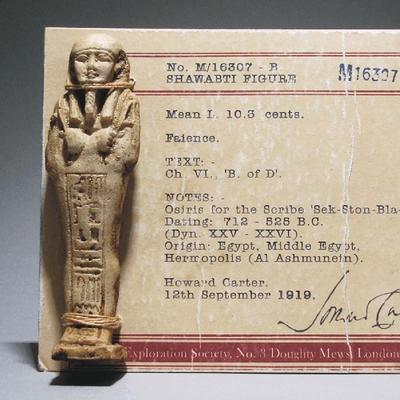 No. M/16307 - B
SHAWABTI FIGURE
M16307
Mean L. 10.3 cents.
Faience.
TEXT: -
Ch. VI., 'B. of D'.
NOTES: -
Osiris for the Scribe 'Sek-Ston-Bla-
Dating: 712 - 525 B.C.
(Dyn. XXV - XXVI).
Origin: Egypt, Middle Egypt,
Hermopolis (Al Ashmunein).
Howard Carter.
12th September 1919.
Exploration Society, No. 3 Doughty Mews, London